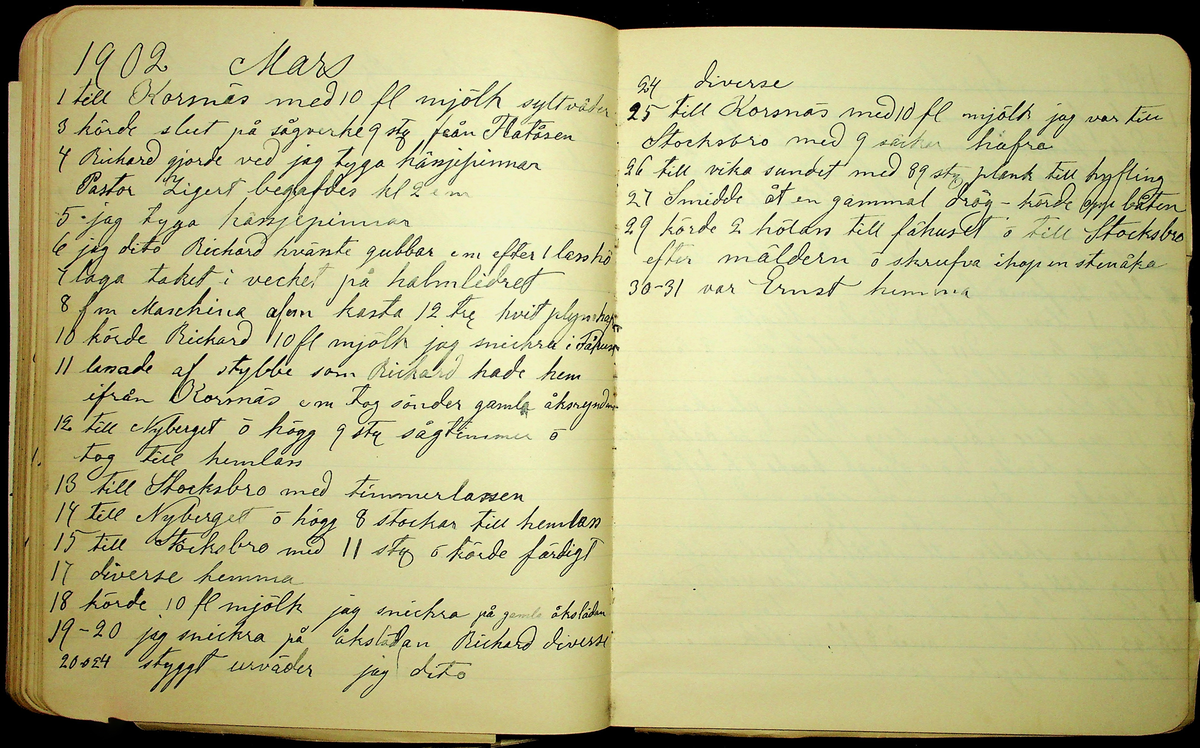 1902 Mars
1 till Korsnäs med 10 fl mjölk syltväder
3 körde slut på sågverke 9 sty från Flatåsen
4 Richard gjorde ved jag tyga hässjepinnar
Pastor Zigert begafdes kl 2 em
5 jag tyga hässjepinnar
6 jag dito Richard hvänte gubbar em efter 1 lass hö
7 laga taket i vecket på halmlidret
8 fm Maschina afem kasta 12 tre hvit
10 körde Richard 10 fl mjölk jag snickra i Fähuse
11 lassade af stybbe som Richard hade hem
ifrån Korsnäs em tog sönder gamla
12 till Nyberget ö högg 9 sty sågtimmer ö
tog till hemlass
13 till Stocksbro med timmerlassen
14 till Nyberget ö högg 8 stockar till hemlass
15 till Stocksbro med 11 sty ö körde färdigt
17 diverse hemma
18 körde 10 fl mjölk jag snickra på gamla åkslädan
19-20 jag snickra på åkslädan Richard diverse
20 o 24 styggt urväder jag dito
24 diverse
25 till Korsnäs med 10 fl mjölk jag var till
Stocksbro med 9 säckar hafra
26 till vika sundet med 89 sty plank till hyfling
27 Smidde åt en gammal drög - körde opp båten
29 körde 2 hölass till fähuset ö till Stocksbro
efter mäldern ö skrufva ihop en stenåka
30-31 var Ernst hemma